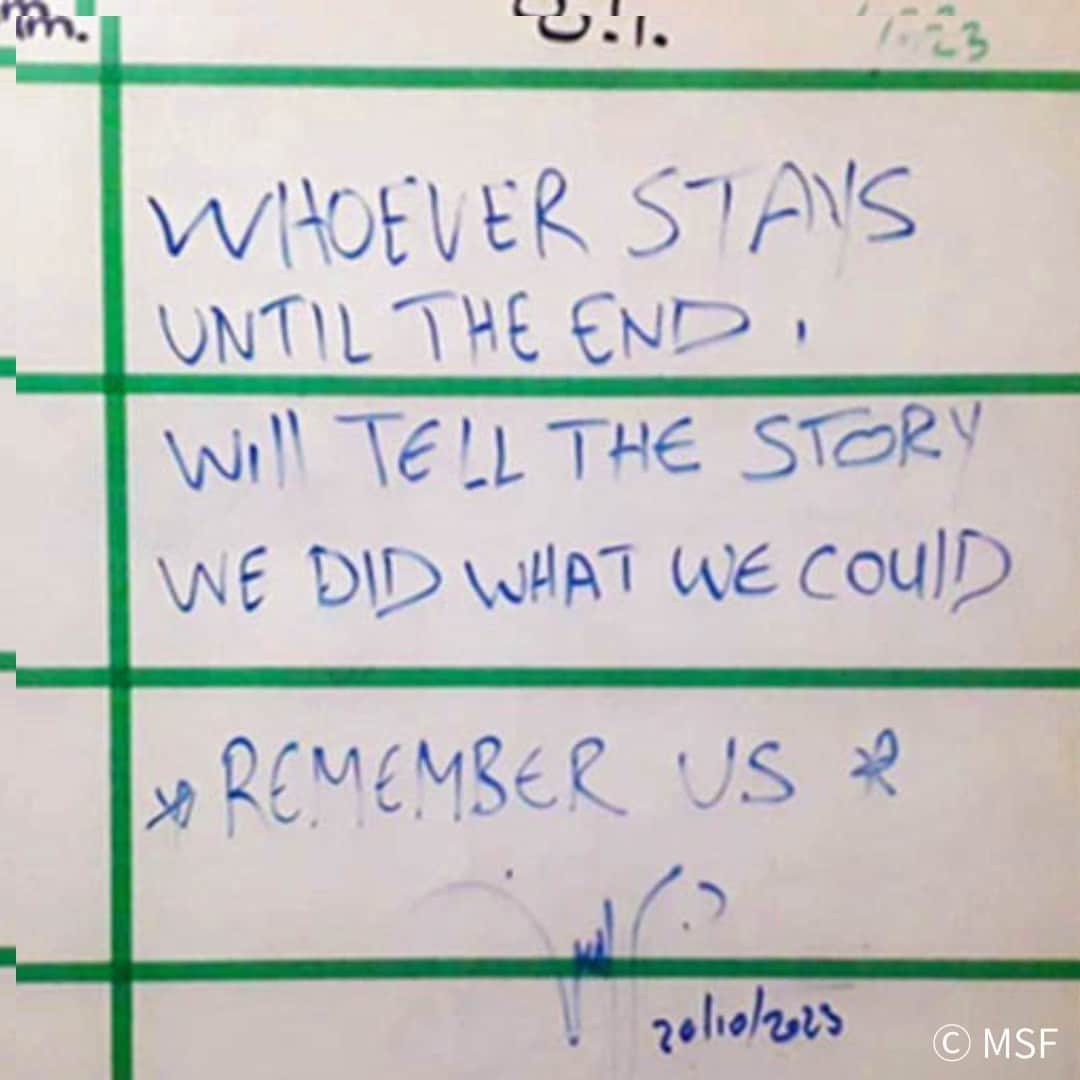 m.
WHOEVER STAYS
UNTIL THE END.
Will TELL THE STORY
WE DID WHAT WE COUlD
*REMEMBER US *
20/10/2023
© MSF